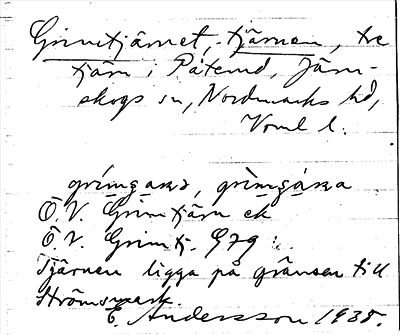 Grimtjärnet, -tjärnen, tre
tjärn i Påterud, Järn-
skogs sn, Nordmarks hd,
Vrml l.
Ö.V. Grimtjärn ek
Ö.V. Grimtj. G79
Tjärnen ligga på gränsen till
Strömsmark.
E. Andersson 1935.